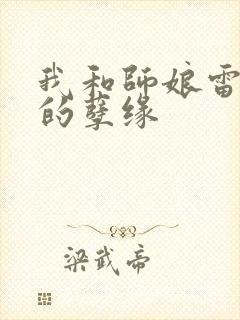 我和師娘雷
的孽缘
梁武帝